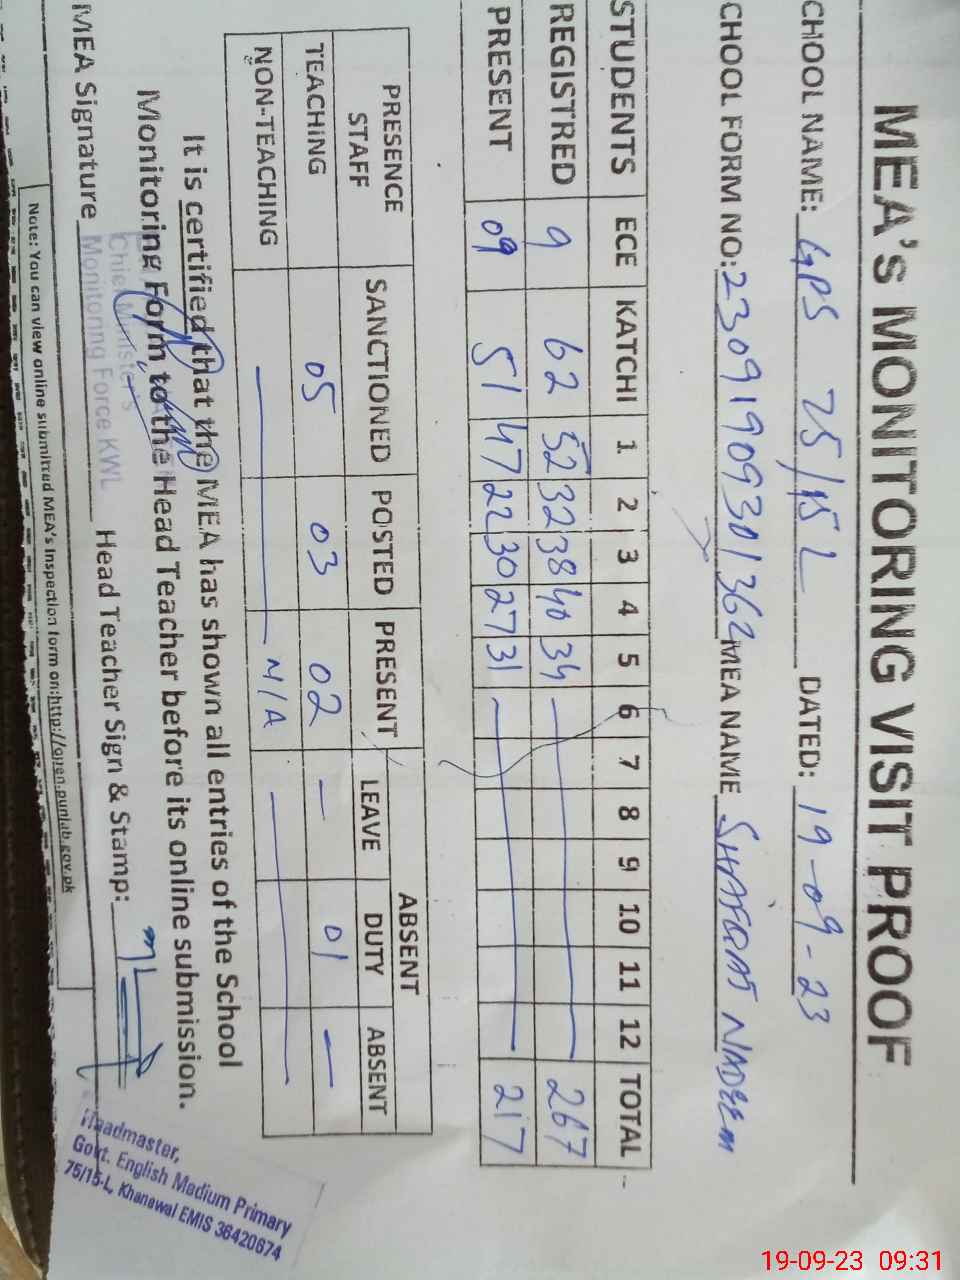 MEA's MONITORING VISIT PROOF
CHOOL NAME: GPS 75/15L DATED: 19-09-23
CHOOL FORM NO: 23091909301362 MEA NAME SHAFQAT NADEEM
STUDENTS ECE KATCHI 1 2 3 4 5 6 7 8 9 10 11 12 TOTAL
REGISTRED 9 62 52 32 38 40 34 267
PRESENT 09 51 47 22 30 27 31 217
PRESENCE STAFF SANCTIONED POSTED PRESENT ABSENT
LEAVE DUTY ABSENT
TEACHING 05 03 02 — 01 —
NON-TEACHING — N/A —
It is certified that the MEA has shown all entries of the School
Monitoring Form to the Head Teacher before its online submission.
Chief Minister's
Monitoring Force KWL
MEA Signature Head Teacher Sign & Stamp:
Headmaster,
Govt. English Medium Primary
75/15-L, Khanewal EMIS 36420674
Note: You can view online submitted MEA's Inspection form on:http://open.punjab.gov.pk
19-09-23 09:31